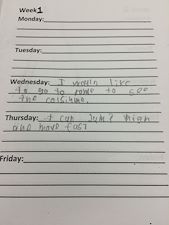 Week1
Monday:
Tuesday:
Wednesday: I wouln like
to go to rome to see
the
Thursday: I can Jump high
and move fast
Friday: